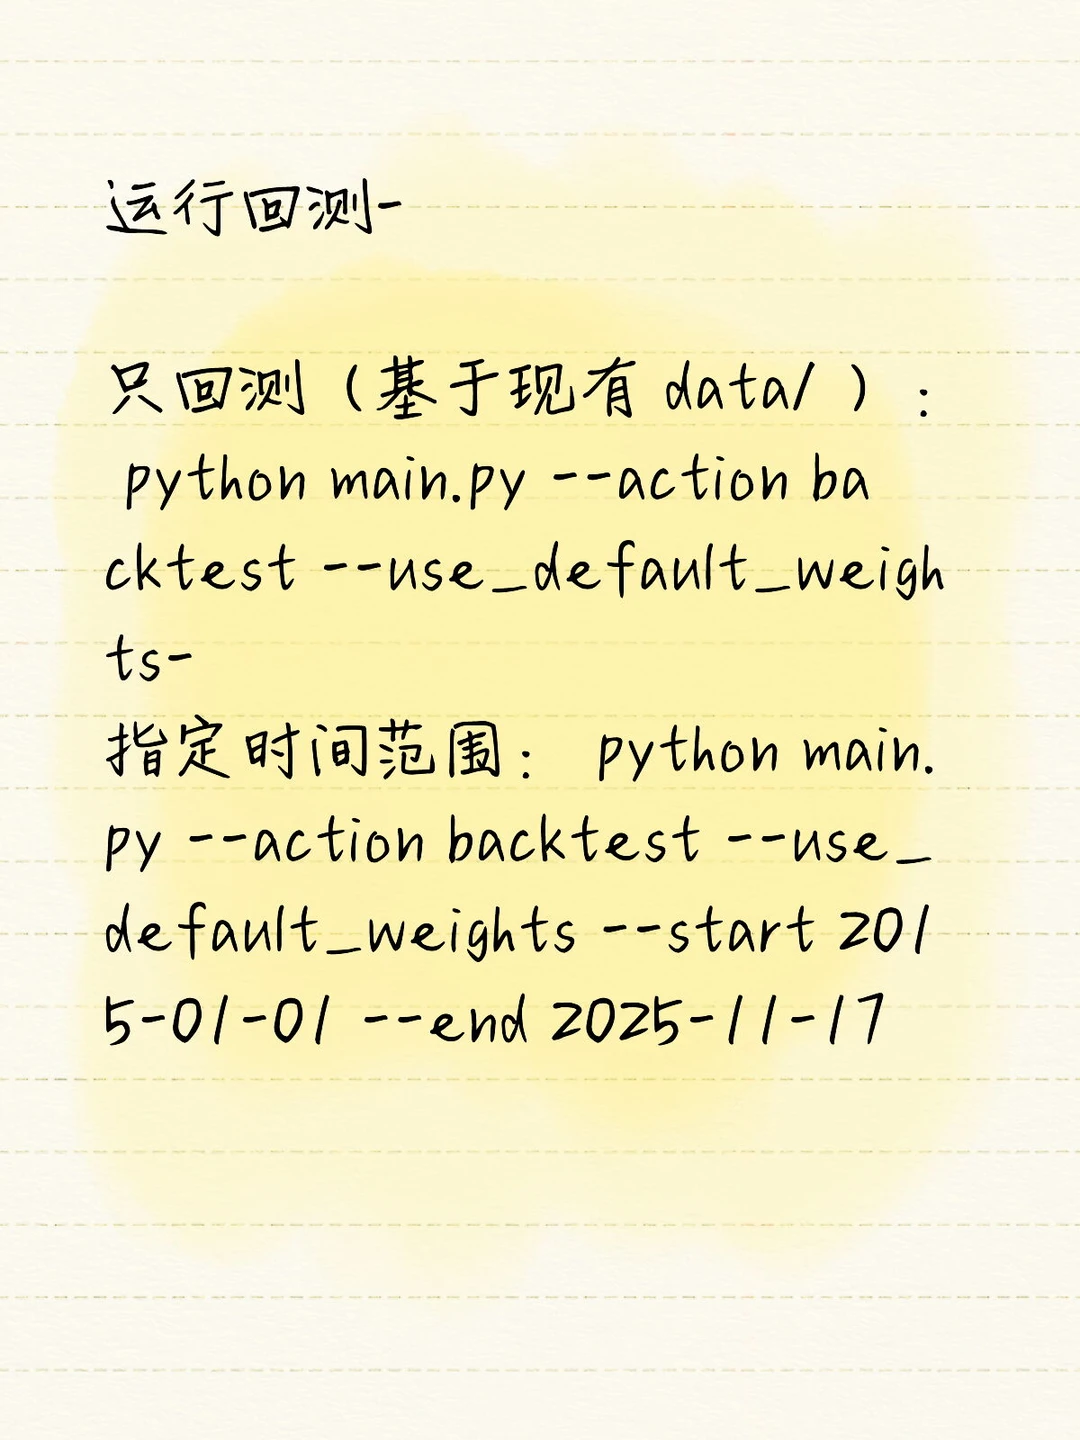 运行回测-
只回测（基于现有 data/ ）：
python main.py --action ba
cktest --use_default_weigh
ts-
指定时间范围： python main.
py --action backtest --use_
default_weights --start 201
5-01-01 --end 2025-11-17